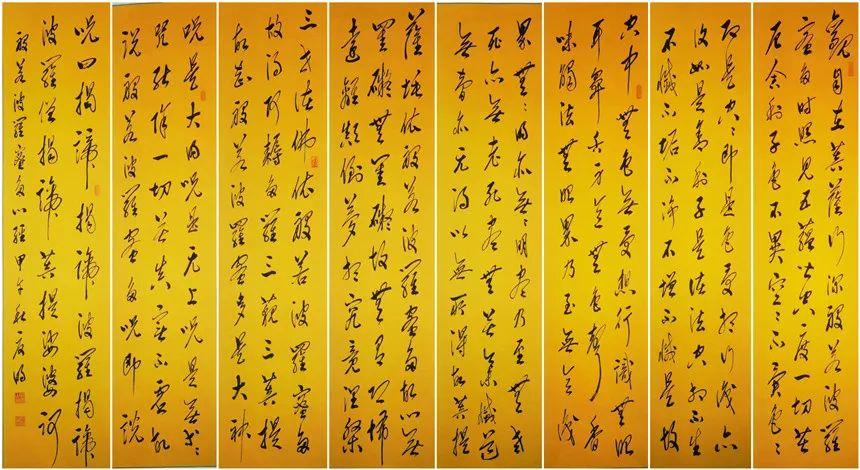 觀自在菩薩行深般若波羅
蜜多時照見五蘊皆空度一切苦
厄舍利子色不異空〻不異色〻
即是空〻即是色受想行識亦
復如是舍利子是諸法空相不生
不滅不垢不淨不增不減是故
空中無色無受想行識無眼
耳鼻舌身意無色聲香
味觸法無眼界乃至無意識
界無〻明亦無〻明盡乃至無老
死亦無老死盡無苦集滅道
無智亦无得以無所得故菩提
薩埵依般若波羅蜜多故心無
罣礙無罣礙故無有恐怖
遠離顛倒夢想究竟涅槃
三世諸佛依般若波羅蜜多
故得阿耨多羅三藐三菩提
故知般若波羅蜜多是大神
呪是大明呪是无上呪是無等〻
呪能除一切苦真實不虛故
說般若波羅蜜多呪即說
呪曰揭諦揭諦波羅揭諦
波羅僧揭諦菩提娑婆訶
般若波羅蜜多心經甲午秋